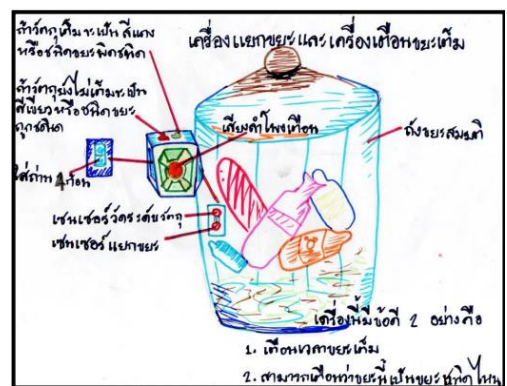 เครื่องแยกขยะและเครื่องเตือนขยะเต็ม
ถ้าวัตถุเต็มจะเป็นสีแดง
หรือชนิดขยะผิดชนิด
ถ้าวัตถุยังไม่เต็มจะเป็น
สีเขียวหรือชนิดขยะ
ถูกชนิด
เสียงลำโพงเตือน
ถังขยะสมมติ
ใส่ถ่าน 4 ก้อน
เซนเซอร์วัดระดับวัตถุ
เซนเซอร์แยกขยะ
เครื่องนี้มีข้อดี 2 อย่างคือ
1. เตือนเวลาขยะเต็ม
2. สามารถเตือนว่าขยะนี้เป็นขยะชนิดไหน